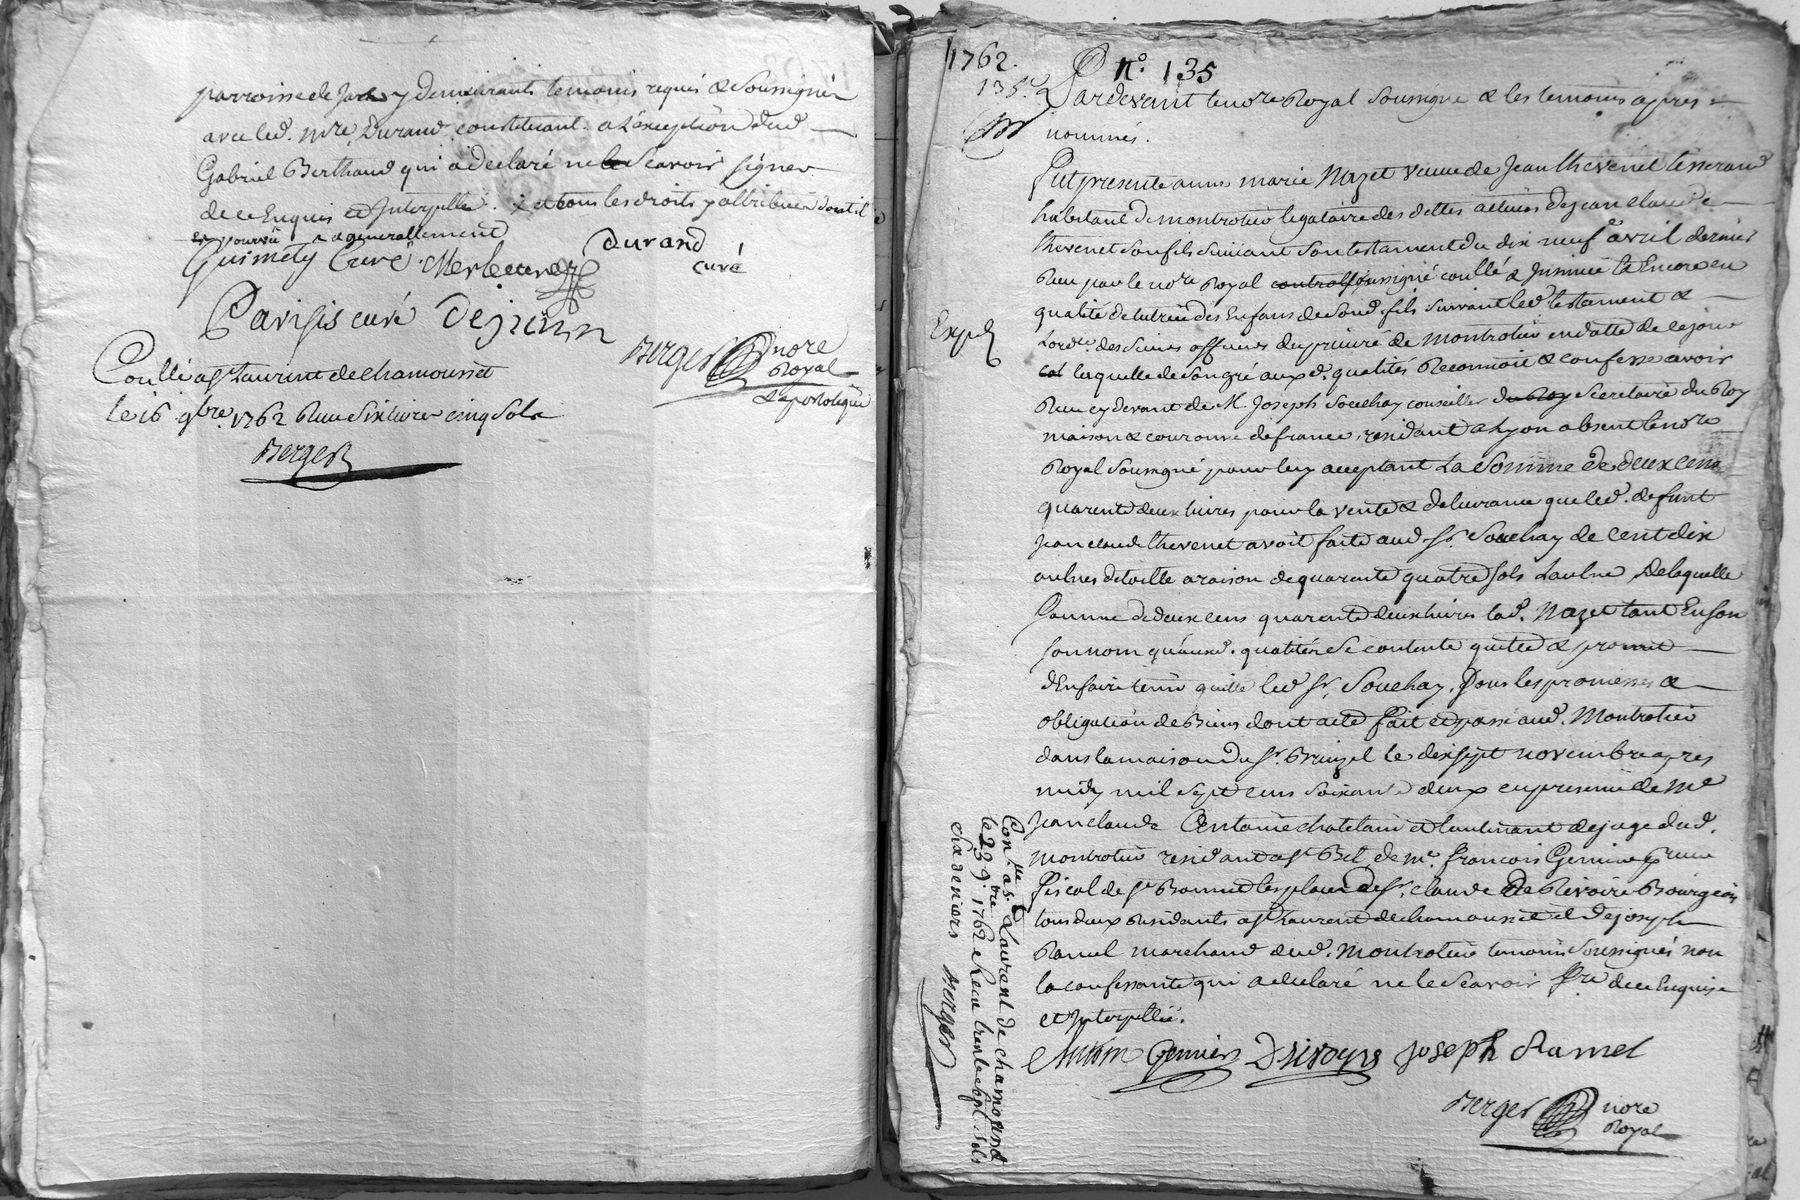 parroisse de Jar y demeurants temoins requis & Soussignés
avec led. mre Durand constituant a L'exception dud.
Gabriel Berthaud qui a declaré ne Scavoir signer
de ce Enquis et Interpellé. & tous les droits y attribués dont il
est pourvû & generallement
Guimety Curé
Durand
curé
Parisis curé Dejussin
Berger nore
Royal
& apostolique
Coullé a st Laurent de chamousset
le 16 9bre. 1762 Recu Six livres cinq Sols
Berger
1762.
N.º 135
135.e
Pardevant le nore Royal Soussigné & les temoins apres
nommés.
Fut presente anne marie Nazet veuve de Jean thevenet tisserand
habitante de montrotier legataire des dettes actives de jean claude
thevenet son fils Suivant Son testament du dix neuf avril dernier
Recu par le nore Royal soussigné coullé & Insinué & Encore en
qualité de tutrice des Enfans de Sond. fils Suivant led. testament &
Lordce. des Sieurs officiers du prieuré de Montrotier en datte de ce jour
Expé
laquelle de Son gré auxd. qualités Reconnoit & confesse avoir
Recu cy devant de M. Joseph Souchay conseiller du Roy Secretaire du Roy
maison & couronne de france, residant a Lyon absent le nore
Royal Soussigné pour luy acceptant La Somme de deux cens
quarente deux livres pour la vente & delivrance que led. defunt
Jean claude thevenet avoit faite aud. Sr. Souchay de cent dix
aulnes de toille a raison de quarente quatre sols Laulne De laquelle
Somme de deux cens quarente deux livres lad. Nazet tant En son
son nom qu'auxd. qualités Se contente quitte & promet
d'En faire tenir quitte led. Sr. Souchay. Sous les promesses &
obligation de Biens dont acte Fait et passé aud. Montrotier
dans la maison du Sr. Bruyzel le dix sept novembre apres
midy mil sept cens Soixante deux en presence de Me
Jean claude Antoine chatelain et lieutenant de juge dud.
Montrotier residant a St Bel de me. francois Gervine pr.eur
fiscal de St Bonnet les places de Sr. claude De Rivoire Bourgeois
tous deux Residants a St Laurent de chamousset et De joseph
Ramel marchand dud. Montrotier temoins Soussignés non
la confessante qui a declaré ne le Scavoir faire de ce Enquise
et Interpellée.
Antoine Gervier Derivoyre Joseph Ramel
Berger nore
Royal
Conlle a St Laurent de chamousset
le 23 9bre 1762 & Recu trente sept sols
six deniers Berger